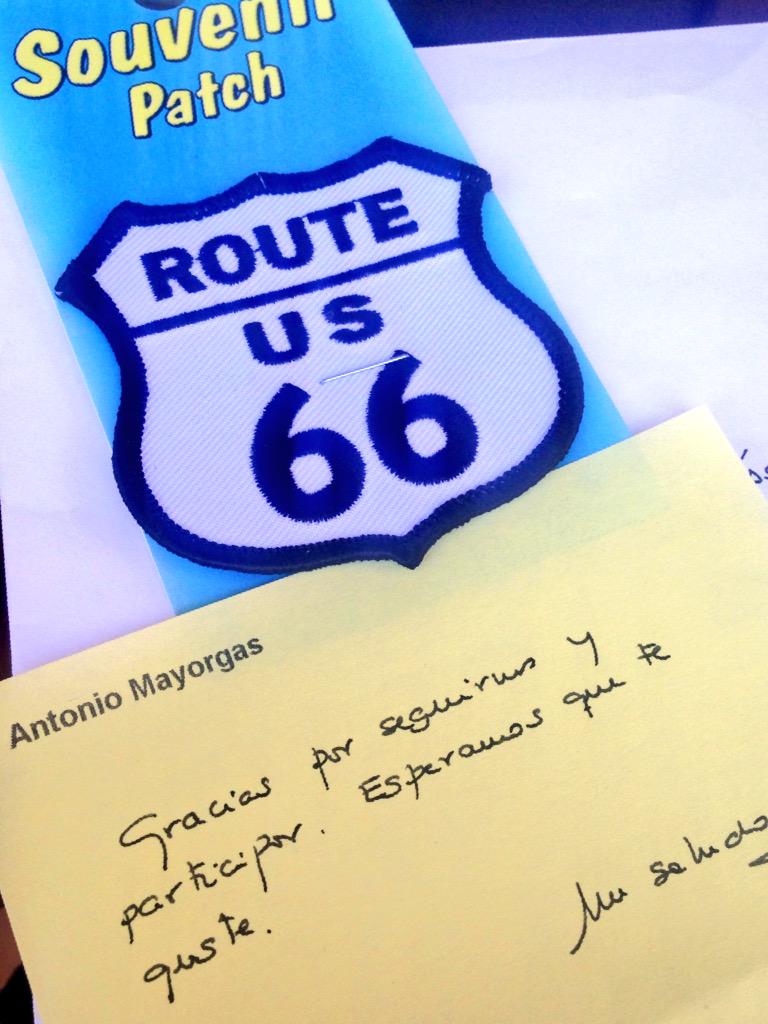 Souvenir
Patch
ROUTE
US
66
Antonio Mayorgas
Gracias por seguirnos y
participar. Esperamos que te
guste.
Un saludo